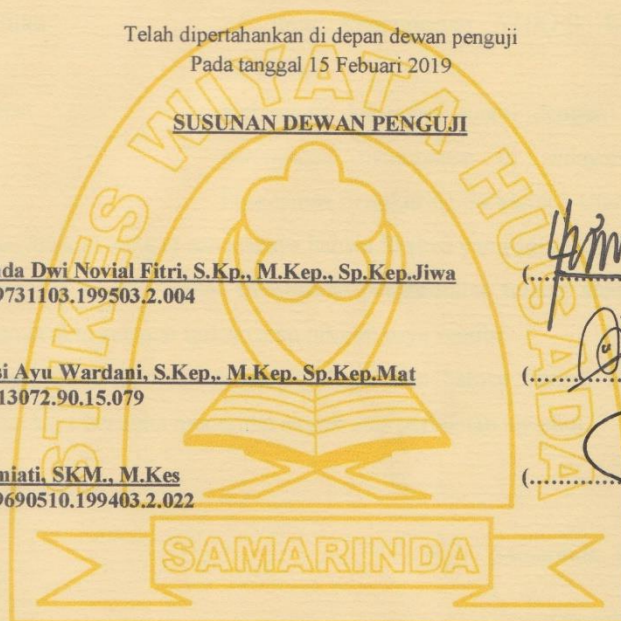 Telah dipertahankan di depan dewan penguji
Pada tanggal 15 Febuari 2019
SUSUNAN DEWAN PENGUJI
STIKES WIYATA HUSADA
da Dwi Novial Fitri, S.Kp., M.Kep., Sp.Kep.Jiwa (.....
9731103.199503.2.004
si Ayu Wardani, S.Kep,. M.Kep. Sp.Kep.Mat (.......
13072.90.15.079
miati, SKM., M.Kes (.....
9690510.199403.2.022
SAMARINDA